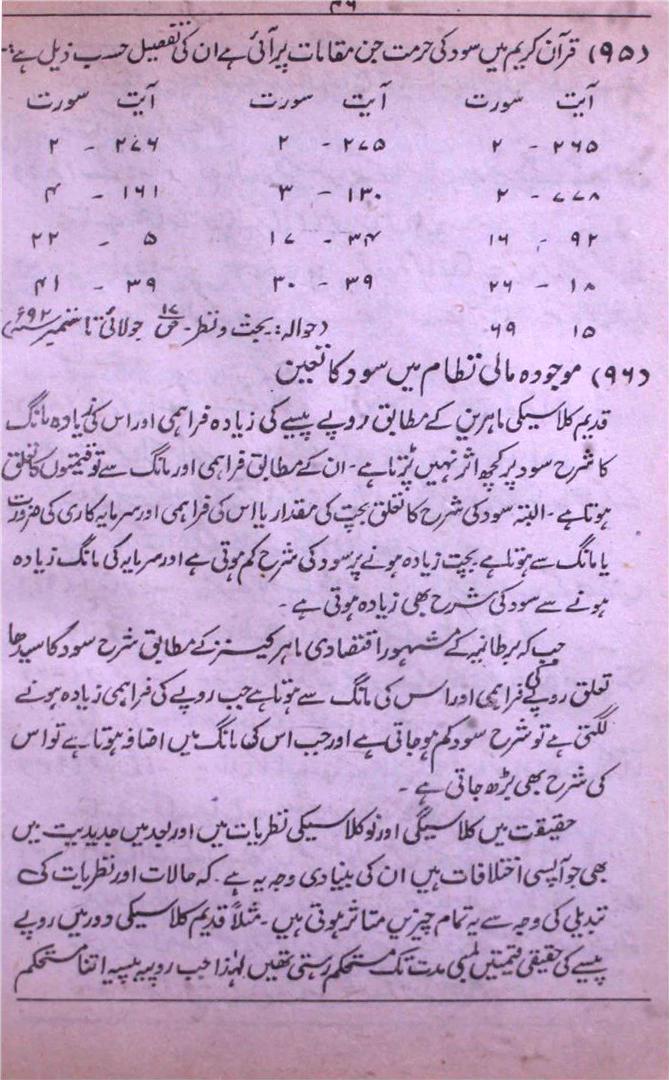 ۴۶
(۹۵) قرآن کریم میں سود کی حرمت جن مقامات پر آئی ہے ان کی تفصیل حسب ذیل ہے:-
آیت سورت آیت سورت آیت سورت
۲۶۵ - ۲ ۲۷۵ - ۲ ۲۷۶ - ۲
۲۷۸ - ۲ ۱۳۰ - ۳ ۱۶۱ - ۴
۹۲ - ۱۶ ۳۴ - ۱۷ ۵ - ۲۲
۱۸ - ۲۶ ۳۹ - ۳۰ ۳۹ - ۴۱
۱۵ ۶۹ (حوالہ: بحث و نظر - ص ۱۷ جولائی تا ستمبر ۶۹۲)
(۹۶) موجودہ مالی نظام میں سود کا تعین
قدیم کلاسیکی ماہرین کے مطابق روپے پیسے کی زیادہ فراہمی اور اس کی زیادہ مانگ
کا شرح سود پر کچھ اثر نہیں پڑتا ہے - ان کے مطابق فراہمی اور مانگ سے تو قیمتوں کا تعلق
ہوتا ہے - البتہ سود کی شرح کا تعلق بچت کی مقدار یا اس کی فراہمی اور سرمایہ کاری کی ضرورت
یا مانگ سے ہوتا ہے بچت زیادہ ہونے پر سود کی شرح کم ہوتی ہے اور سرمایہ کی مانگ زیادہ
ہونے سے سود کی شرح بھی زیادہ ہوتی ہے -
جب کہ برطانیہ کے مشہور اقتصادی ماہر کینز کے مطابق شرح سود کا سیدھا
تعلق روپے کی فراہمی اور اس کی مانگ سے ہوتا ہے جب روپے کی فراہمی زیادہ ہونے
لگتی ہے تو شرح سود کم ہو جاتی ہے اور جب اس کی مانگ میں اضافہ ہوتا ہے تو اس
کی شرح بھی بڑھ جاتی ہے -
حقیقت میں کلاسیکی اور نو کلاسیکی نظریات میں اور بعد میں جدیدیت میں
بھی جو آپسی اختلافات ہیں ان کی بنیادی وجہ یہ ہے - کہ حالات اور نظریات کی
تبدیلی کی وجہ سے یہ تمام چیزیں متاثر ہوتی ہیں - مثلاً قدیم کلاسیکی دور میں روپے
پیسے کی حقیقی قیمتیں لمبی مدت تک مستحکم رہتی تھیں لہٰذا جب روپیہ پیسہ اتنا مستحکم